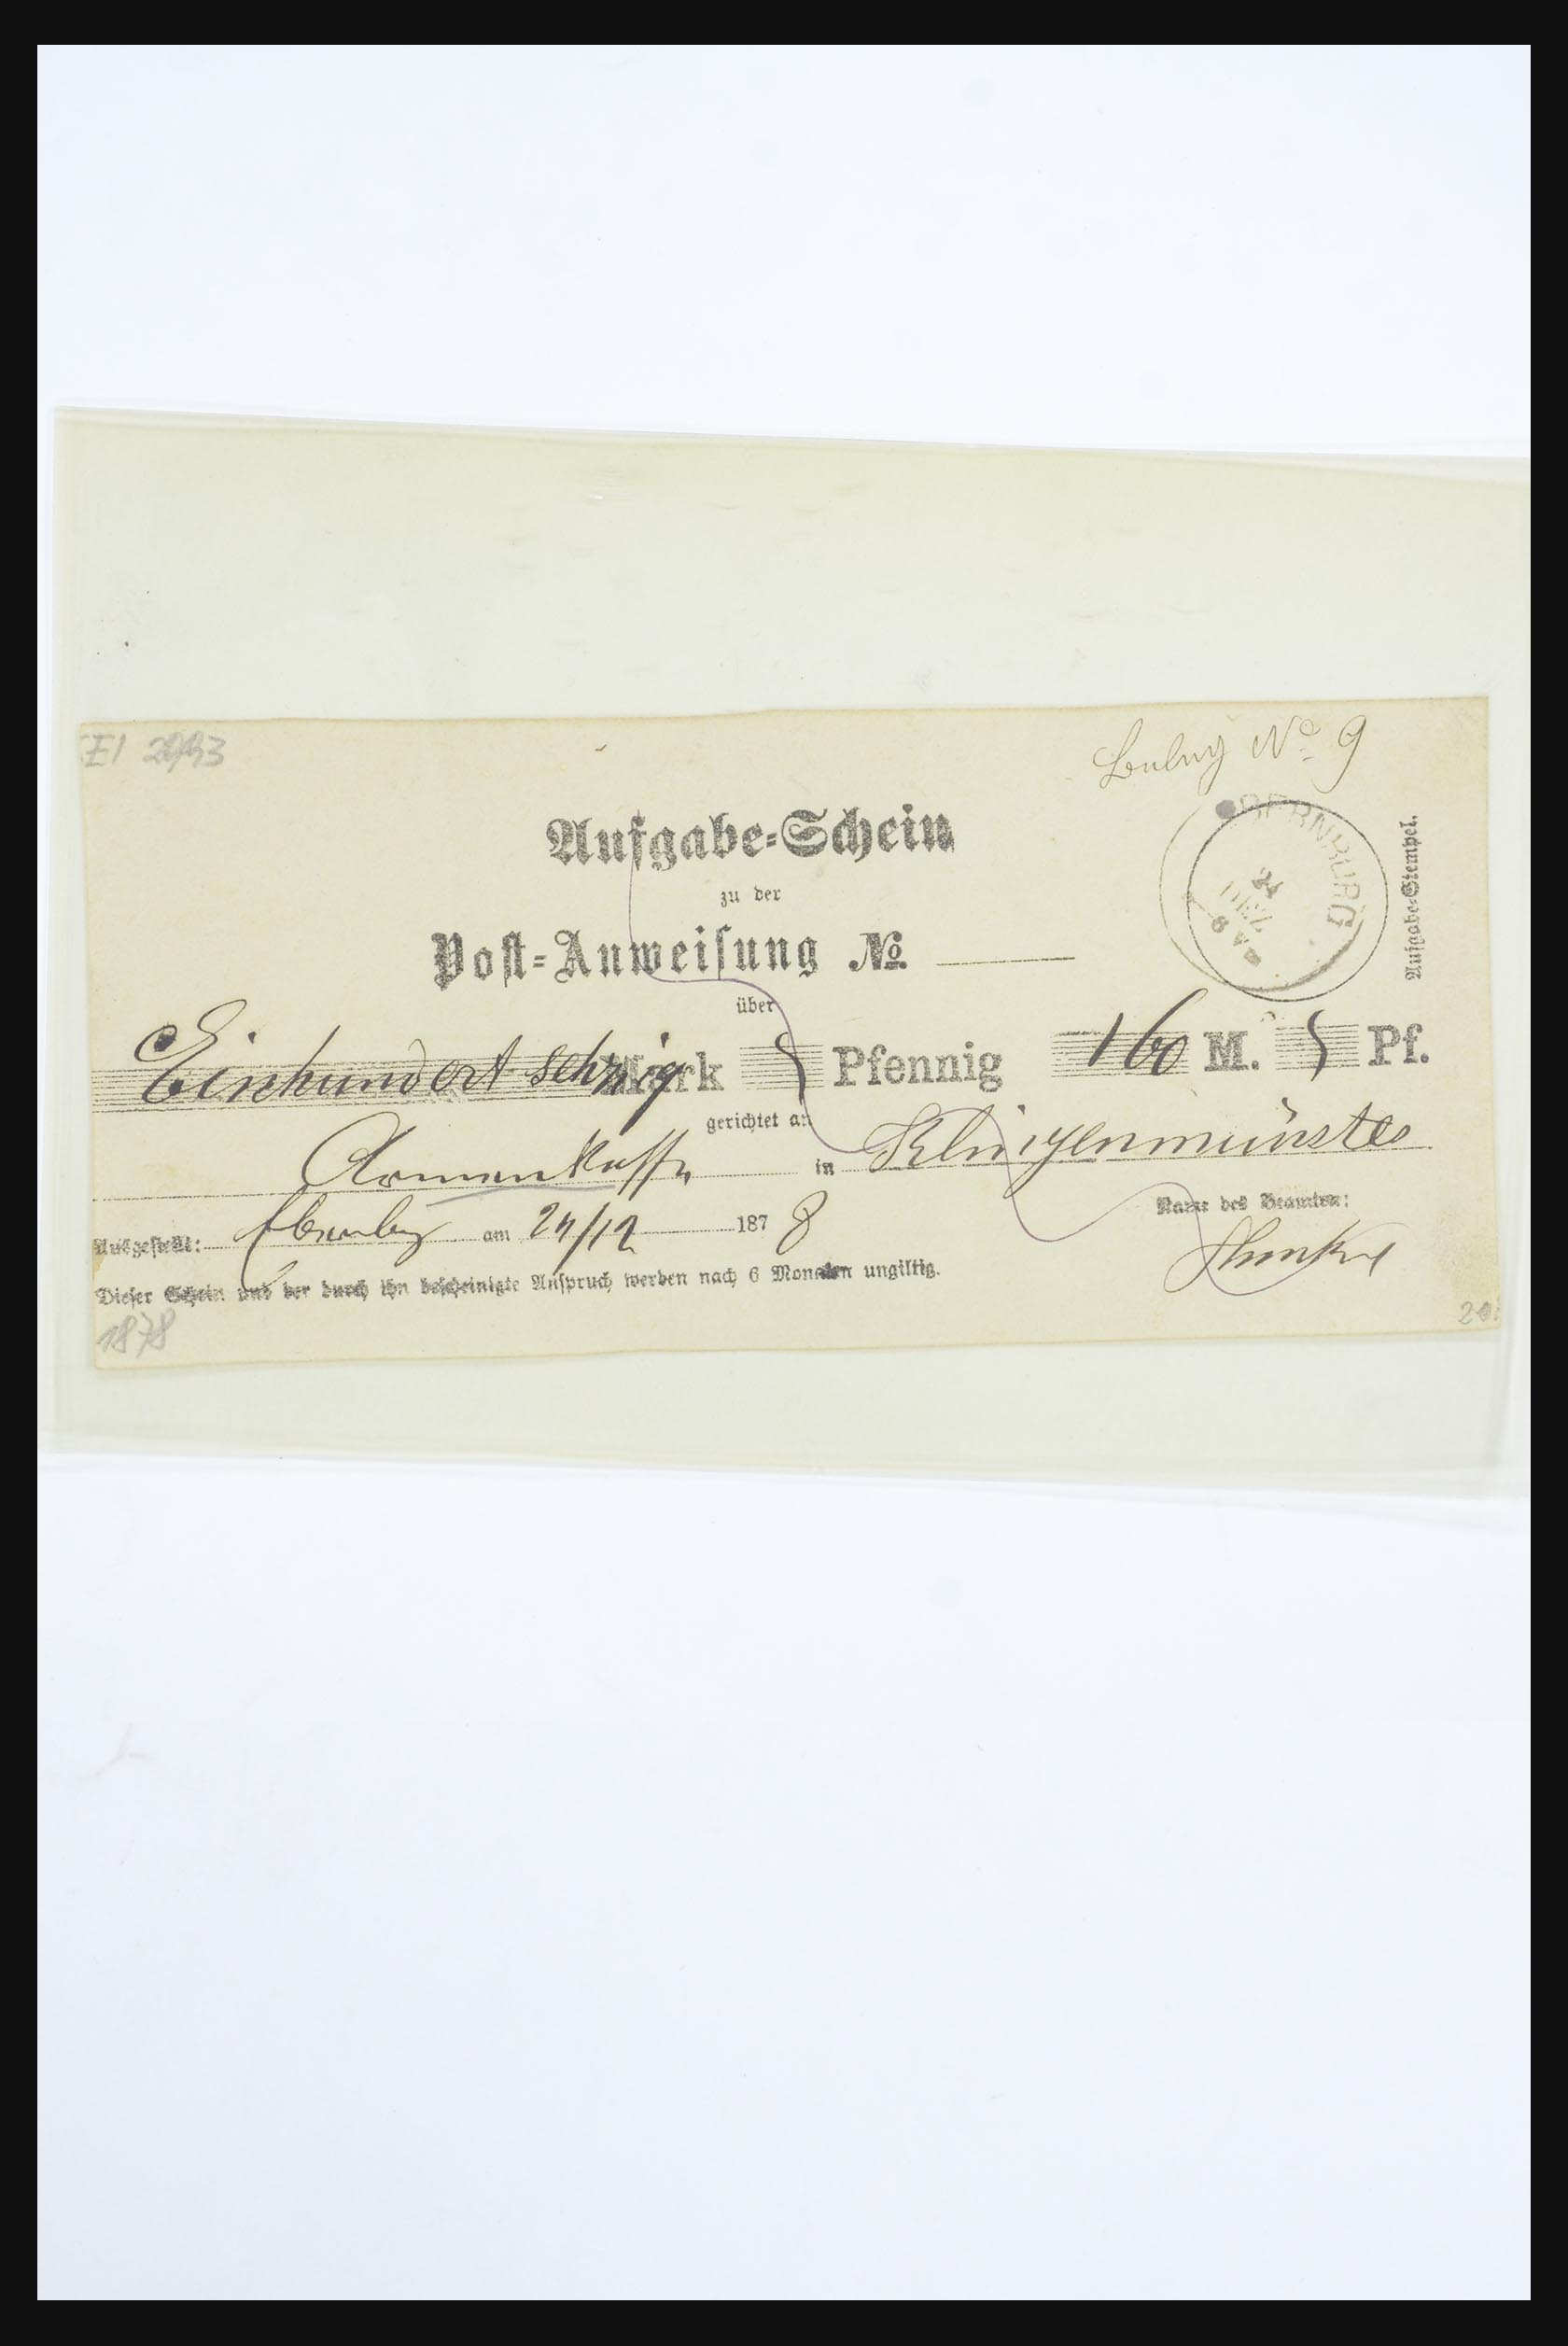 Beleg No 9
Aufgabe-Schein
zu der
Post-Anweisung No.
über
Einhundert sechzig Mark Pfennig 160 M. Pf.
gerichtet an
Armenkasse in Klingenmünster
Ausgestellt: am 24/12 1878
Name des Beamten:
Dieser Schein und der durch ihn bescheinigte Anspruch werden nach 6 Monaten ungiltig.
1878
24 DEZ
Aufgabe-Stempel.